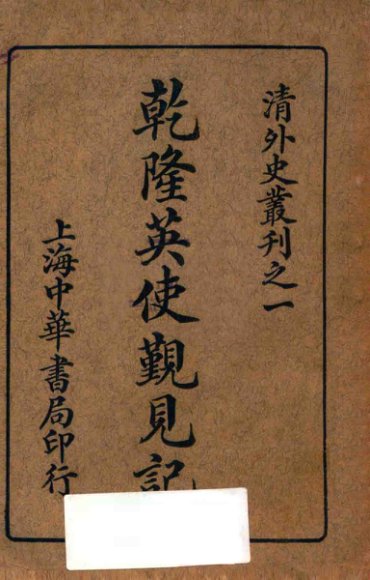 清外史叢刊之一
乾隆英使觐見記
上海中華書局印行